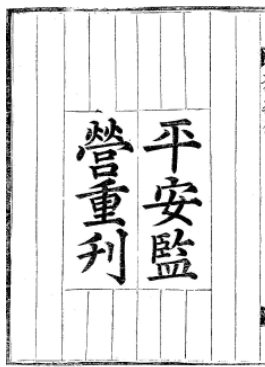 平安監
營重刋